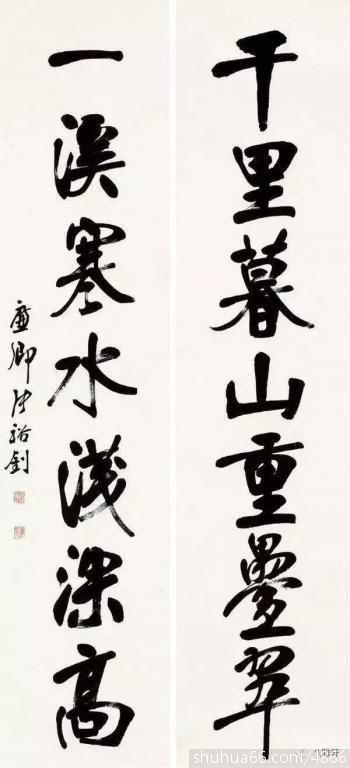 千里暮山重疊翠
一溪寒水淺深高
廉卿張裕釗
shuhua66.com/4866